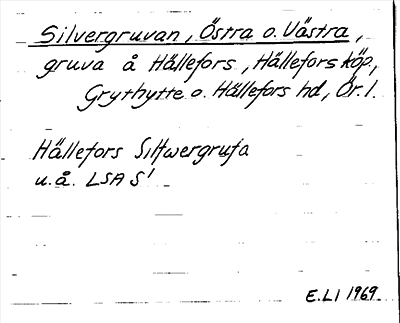 Silvergruvan, Östra o. Västra,
gruva å Hällefors, Hällefors köp.,
Grythytte o. Hällefors hd, Ör. l.
Hällefors Silfwergrufa
u.å. LSA S1
E.LI 1969